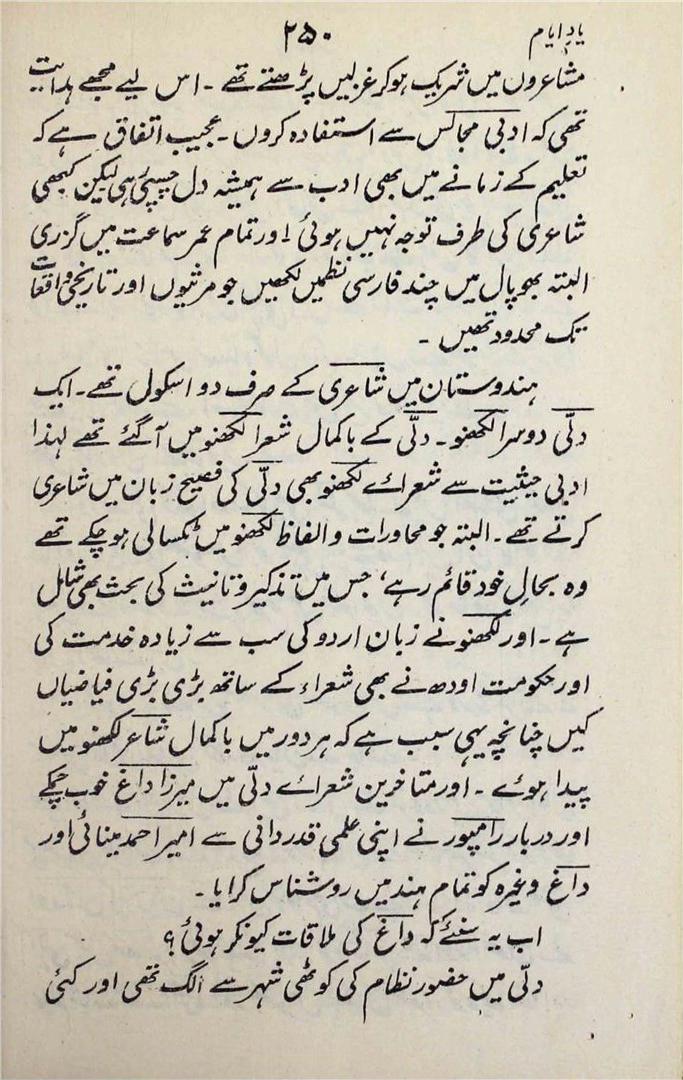 یادِ ایام
۲۵۰
مشاعروں میں شریک ہوکر غزلیں پڑھتے تھے ۔ اس لیے مجھے ہدایت
تھی کہ ادبی مجالس سے استفادہ کروں ۔ عجیب اتفاق ہے کہ
تعلیم کے زمانے میں بھی ادب سے ہمیشہ دل چسپی رہی لیکن کبھی
شاعری کی طرف توجہ نہیں ہوئی ! اور تمام عمر سماعت میں گزری
البتہ بھوپال میں چند فارسی نظمیں لکھیں جو مرثیوں اور تاریخی واقعات
تک محدود تھیں ۔
ہندوستان میں شاعری کے صرف دو اسکول تھے ۔ ایک
دلّی دوسرا لکھنو ۔ دلّی کے باکمال شعرا لکھنو میں آگئے تھے لہذا
ادبی حیثیت سے شعرائے لکھنو بھی دلّی کی فصیح زبان میں شاعری
کرتے تھے ۔ البتہ جو محاورات و الفاظ لکھنو میں ٹکسالی ہوچکے تھے
وہ بحالِ خود قائم رہے، جس میں تذکیر و تانیث کی بحث بھی شامل
ہے ۔ اور لکھنو نے زبان اردو کی سب سے زیادہ خدمت کی
اور حکومت اودھ نے بھی شعراء کے ساتھ بڑی بڑی فیاضیاں
کیں چنانچہ یہی سبب ہے کہ ہر دور میں باکمال شاعر لکھنو میں
پیدا ہوئے ۔ اور متاخرین شعرائے دلّی میں میرزا داغ خوب چمکے
اور دربار رامپور نے اپنی علمی قدردانی سے امیر احمد مینائی اور
داغ وغیرہ کو تمام ہند میں روشناس کرایا ۔
اب یہ سنئے کہ داغ کی ملاقات کیونکر ہوئی ؟
دلّی میں حضور نظام کی کوٹھی شہر سے الگ تھی اور کئی